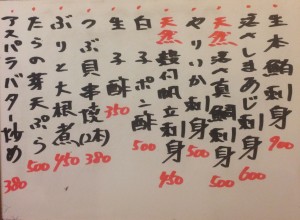 生本鮪刺身 900
淡べしまあじ刺身 600
天然 淡べ真鯛刺身 500
やりいか刺身 500
天然 殻付帆立刺身 450
白子ポン酢 500
生子酢 350
つぶ貝串焼(2本) 380
ぶりと大根煮 450
たらの芽天ぷら 500
アスパラバター炒め 380